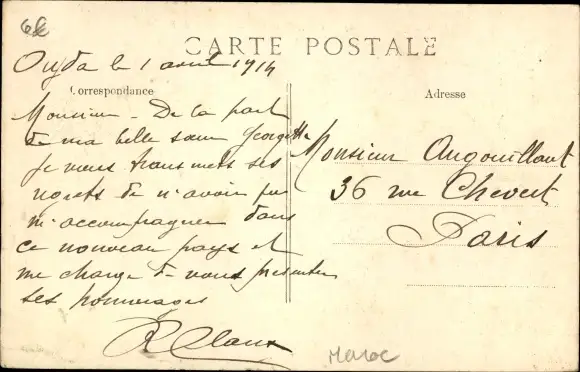 6€
CARTE POSTALE
Oujda le 1 avril 1914
Correspondance
Adresse
Monsieur - De la part
de ma belle sœur Georgette
je vous transmets ses
regrets de n'avoir pu
m'accompagner dans
ce nouveau pays et
me charge de vous présenter
ses hommages
R
Monsieur Angouillant
36 rue Chevert
Paris
Maroc